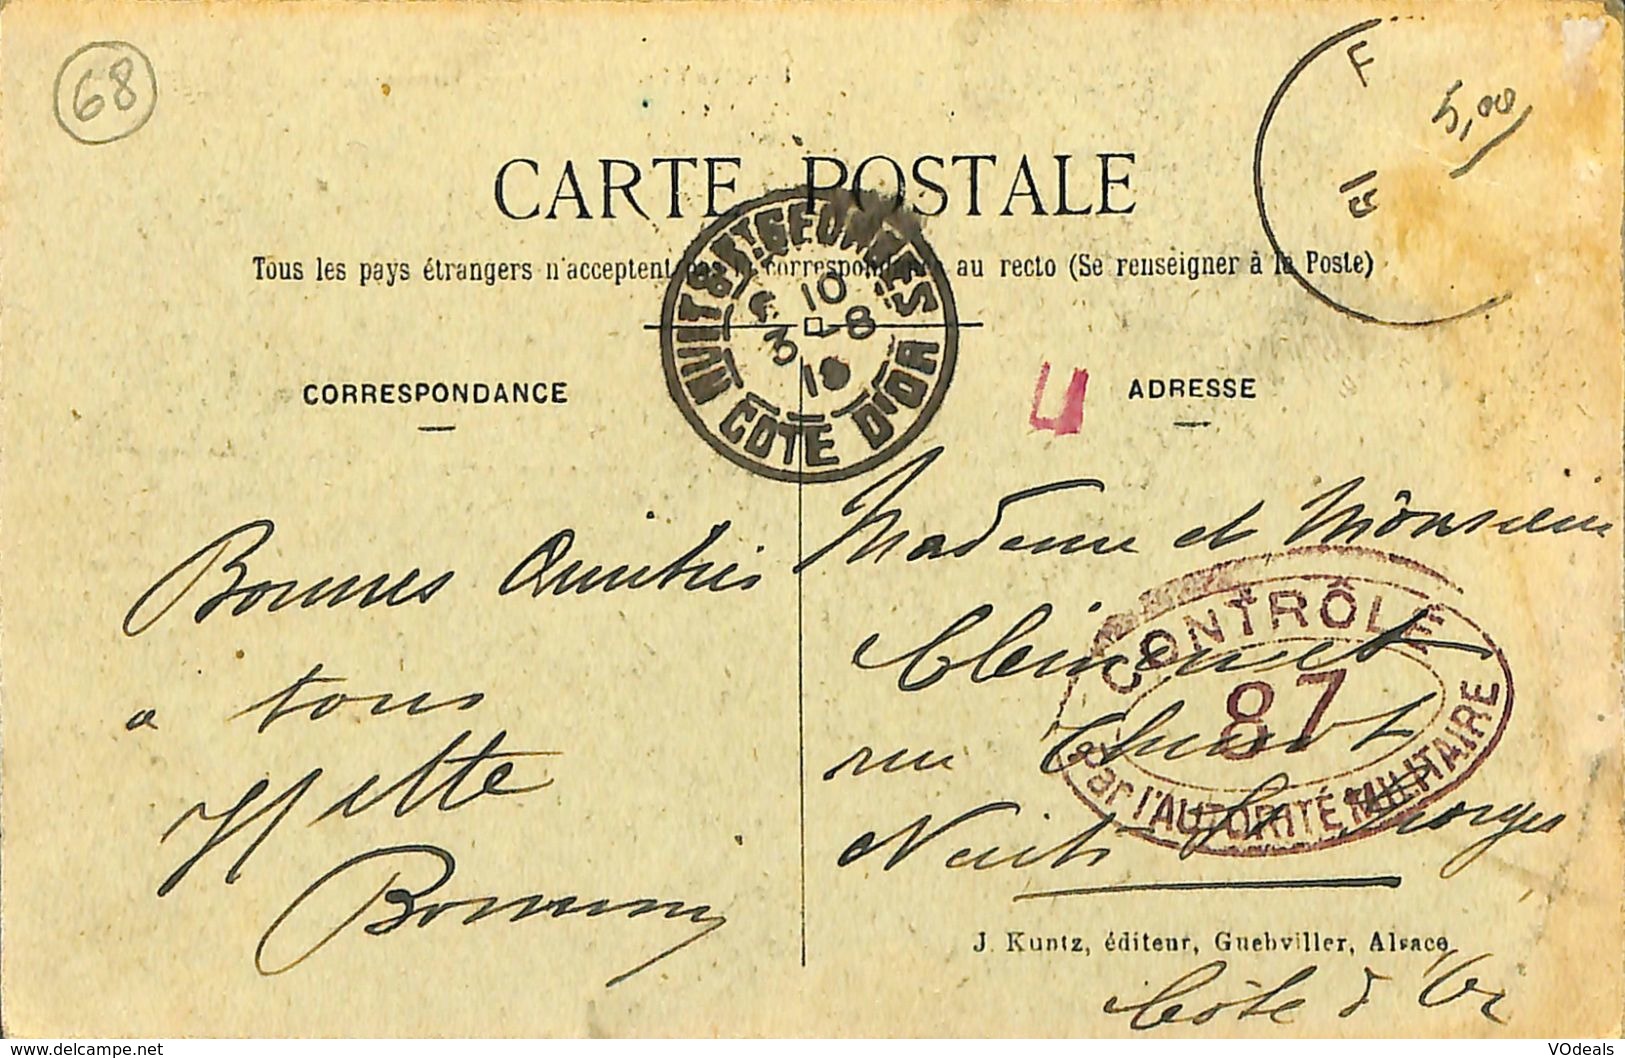 68
F
5,00
CARTE POSTALE
Tous les pays étrangers n'acceptent pas la correspondance au recto (Se renseigner à la Poste)
NUITS St GEORGES
10
3 - 8
19
COTE D'OR
CORRESPONDANCE
ADRESSE
Bonnes Amitiés
a tous
Yette
Madame et Monsieur
Clémencet
rue Thurot
Nuits St Georges
Côte d'Or
CONTRÔLE
87
Par l'AUTORITÉ MILITAIRE
J. Kuntz, éditeur, Guebviller, Alsace
VOdeals
www.delcampe.net